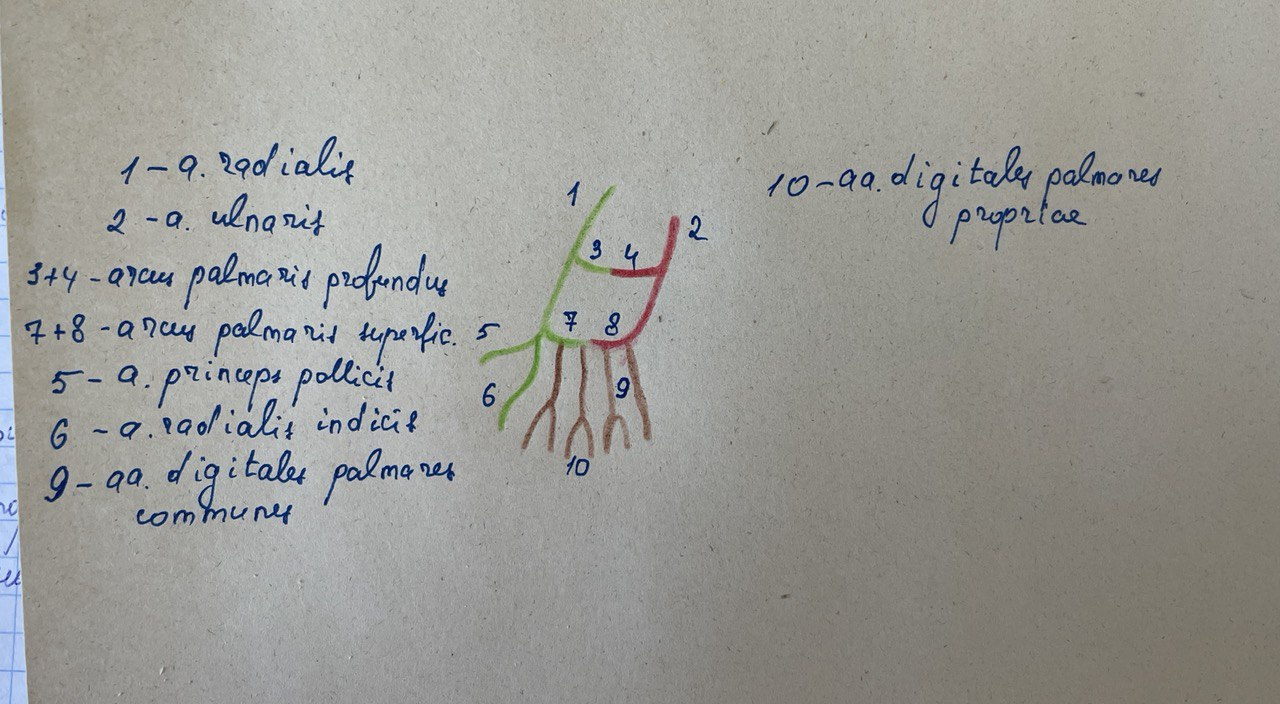 1 - a. radialis
2 - a. ulnaris
3+4 - arcus palmaris profundus
7+8 - arcus palmaris superfic.
5 - a. princeps pollicis
6 - a. radialis indicis
9 - aa. digitales palmares
communes
1
2
3
4
5
7
8
6
9
10
10 - aa. digitales palmares
propriae